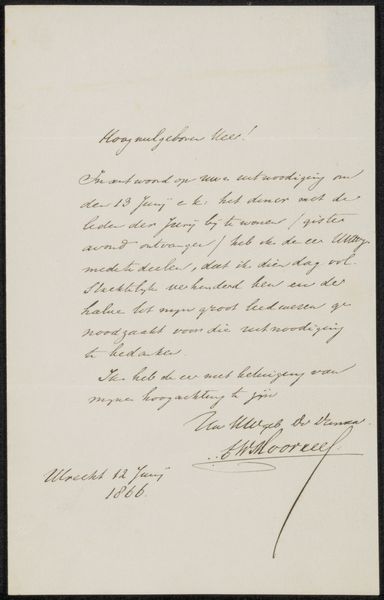 Hoog welgeboren Heer!
In antwoord op uwe uitnoodiging om
den 13 Junij e.k. het diner met de
leden der Jurij bij te wonen / gister
avond ontvangen / heb ik de eer UWEg.
mede te deelen, dat ik dien dag vol-
slachtelijk verhinderd ben en de
halve tot mijn groot leedwezen ge
noodzaakt voor die uitnoodiging
te bedanken.
Ik heb de eer met betuiging van
mijne hoogachting te zijn
Uw UWgeb. Dv. Dienaar
Utrecht 12 Junij
1866.